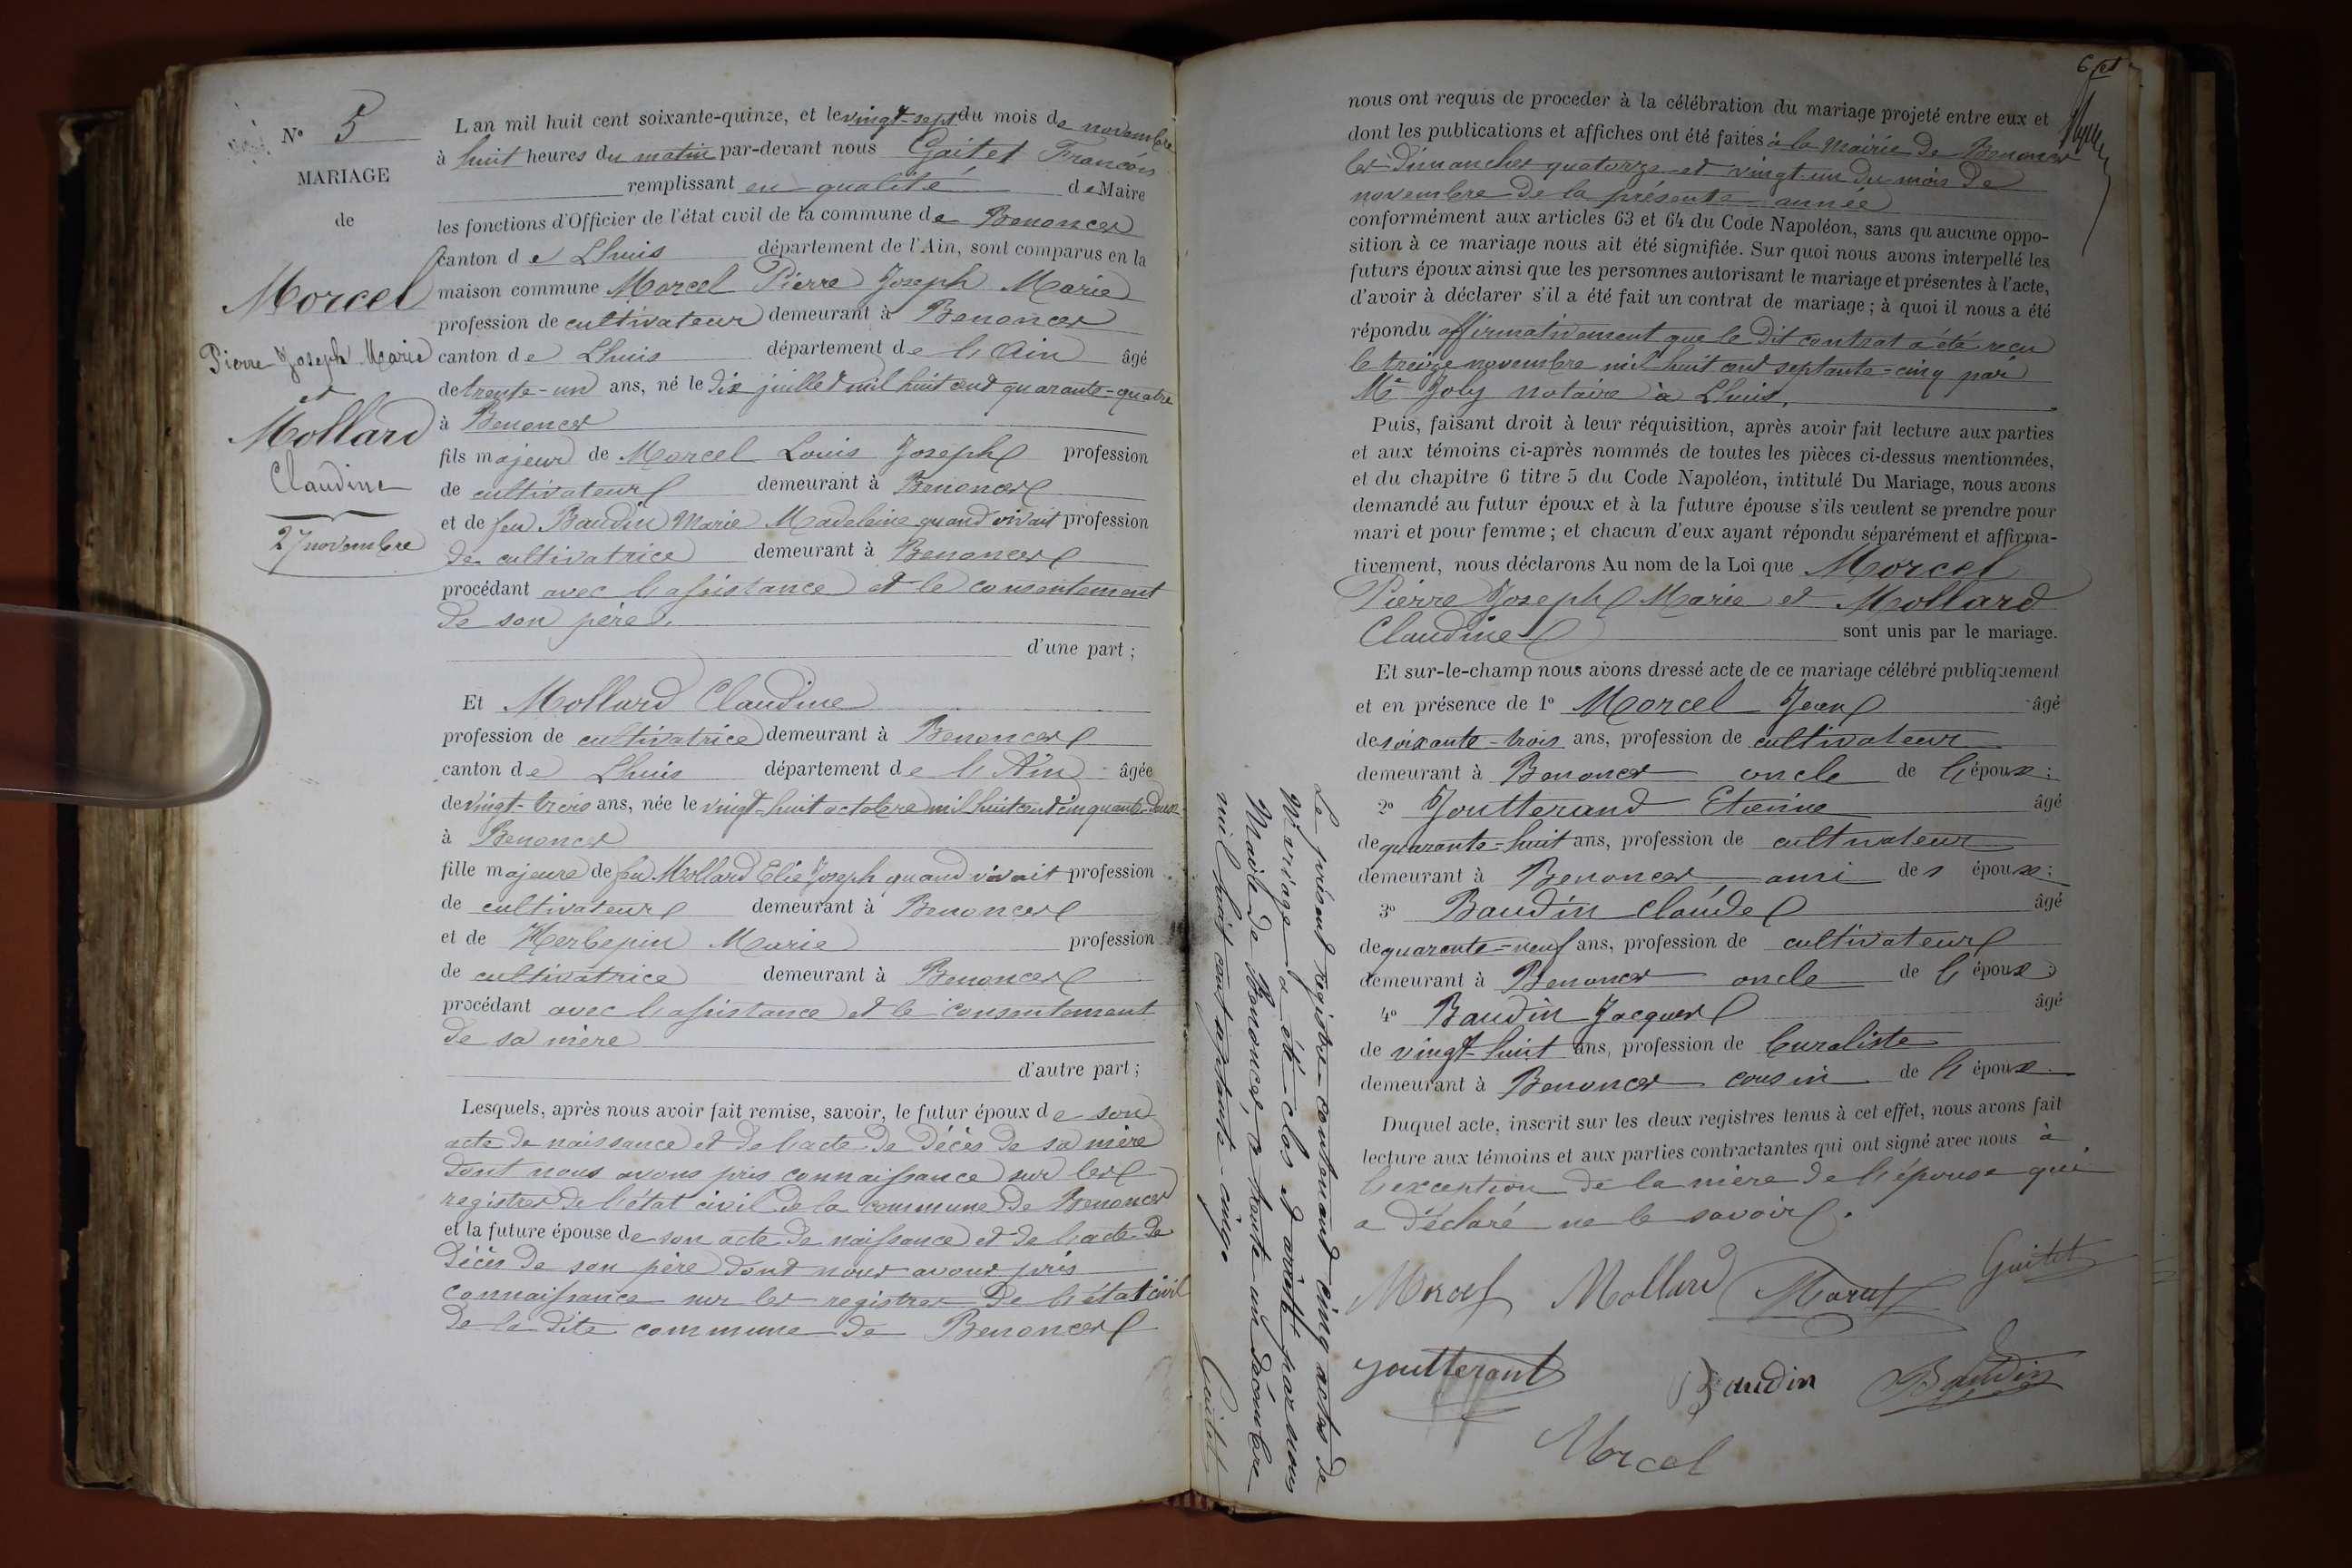 N° 5
MARIAGE
de
Morcel
Pierre Joseph Marie
et
Mollard
Claudine
27 novembre
L'an mil huit cent soixante-quinze, et le vingt-sept du mois de novembre
à huit heures du matin par-devant nous Gaitet François
remplissant en qualité de Maire
les fonctions d'Officier de l'état civil de la commune de Benonces
canton de Lhuis département de l'Ain, sont comparus en la
maison commune Morcel Pierre Joseph Marie
profession de cultivateur demeurant à Benonces
canton de Lhuis département de l'Ain âgé
de trente-un ans, né le dix juillet mil huit cent quarante-quatre
à Benonces
fils majeur de Morcel Louis Joseph profession
de cultivateur demeurant à Benonces
et de feu Baudin Marie Madeleine quand vivait profession
de cultivatrice demeurant à Benonces
procédant avec l'assistance et le consentement
de son père.
d'une part ;
Et Mollard Claudine
profession de cultivatrice demeurant à Benonces
canton de Lhuis département de l'Ain âgée
de vingt-trois ans, née le vingt-huit octobre mil huit cent cinquante-deux
à Benonces
fille majeure de feu Mollard Elie Joseph quand vivait profession
de cultivateur demeurant à Benonces
et de Herbepin Marie profession
de cultivatrice demeurant à Benonces
procédant avec l'assistance et le consentement
de sa mère
d'autre part ;
Lesquels, après nous avoir fait remise, savoir, le futur époux de son
acte de naissance et de l'acte de décès de sa mère
dont nous avons pris connaissance sur les
registres de l'état civil de la commune de Benonces
et la future épouse de son acte de naissance et de l'acte de
décès de son père dont nous avons pris
connaissance sur les registres de l'état civil
de la dite commune de Benonces
6 et
nous ont requis de proceder à la célébration du mariage projeté entre eux et
dont les publications et affiches ont été faites à la Mairie de Benonces
les dimanches quatorze et vingt un du mois de
novembre de la présente année
conformément aux articles 63 et 64 du Code Napoléon, sans qu'aucune oppo-
sition à ce mariage nous ait été signifiée. Sur quoi nous avons interpellé les
futurs époux ainsi que les personnes autorisant le mariage et présentes à l'acte,
d'avoir à déclarer s'il a été fait un contrat de mariage ; à quoi il nous a été
répondu affirmativement que le dit contrat a été reçu
le treize novembre mil huit cent septante-cinq par
Me Joly notaire à Lhuis.
Puis, faisant droit à leur réquisition, après avoir fait lecture aux parties
et aux témoins ci-après nommés de toutes les pièces ci-dessus mentionnées,
et du chapitre 6 titre 5 du Code Napoléon, intitulé Du Mariage, nous avons
demandé au futur époux et à la future épouse s'ils veulent se prendre pour
mari et pour femme ; et chacun d'eux ayant répondu séparément et affirma-
tivement, nous déclarons Au nom de la Loi que Morcel
Pierre Joseph Marie et Mollard
Claudine sont unis par le mariage.
Et sur-le-champ nous avons dressé acte de ce mariage célébré publiquement
et en présence de 1° Morcel Jean âgé
de soixante-trois ans, profession de cultivateur
demeurant à Benonces oncle de l'époux :
2° Joutterand Etienne âgé
de quarante-huit ans, profession de cultivateur
demeurant à Benonces ami des époux :
3° Baudin Claude âgé
de quarante-neuf ans, profession de cultivateur
demeurant à Benonces oncle de l'époux :
4° Baudin Jacques âgé
de vingt-huit ans, profession de buraliste
demeurant à Benonces cousin de l'époux
Duquel acte, inscrit sur les deux registres tenus à cet effet, nous avons fait
lecture aux témoins et aux parties contractantes qui ont signé avec nous à
l'exception de la mère de l'épouse qui
a déclaré ne le savoir.
Morcel Mollard Morcel Gaitet
Joutterant Baudin Baudin
Morcel
Le présent registre contenant cinq actes de
Mariage a été clos et arrêté par nous
Maire de Benonces, ce trente un décembre
mil huit cent septante-cinq.
Gaitet